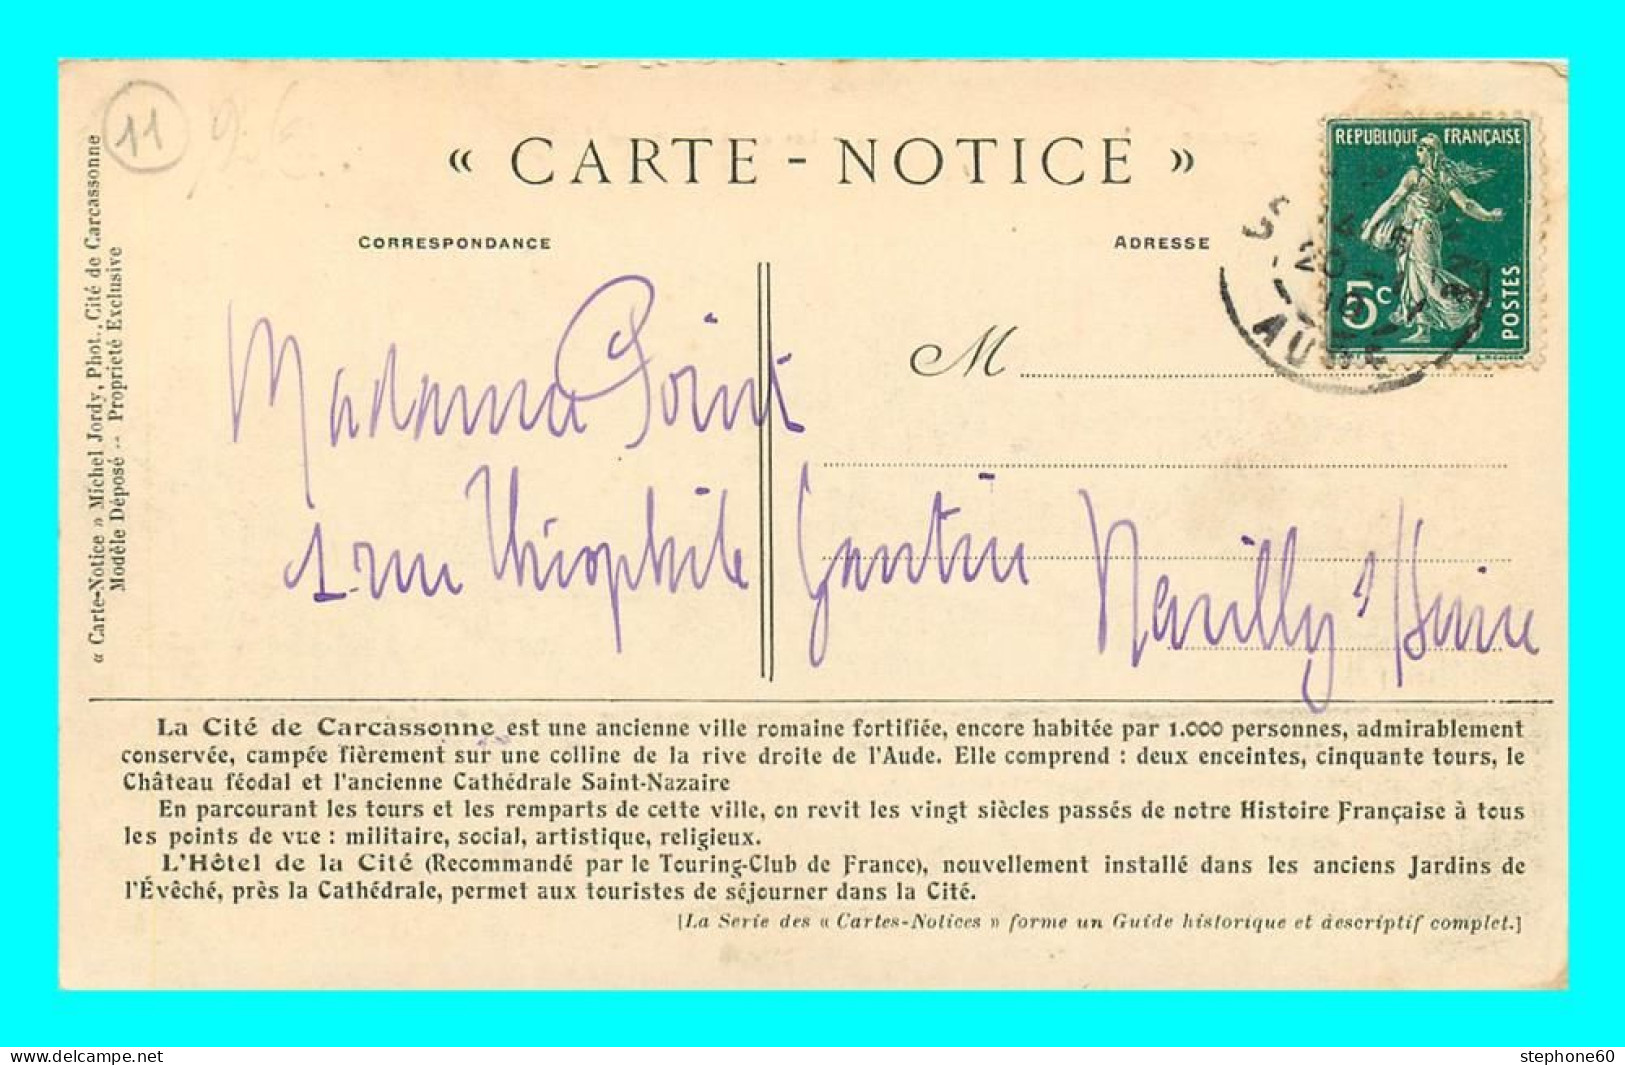 11
« CARTE - NOTICE »
REPUBLIQUE FRANÇAISE
5c
POSTES
AUDE
CORRESPONDANCE
ADRESSE
M
Madame Point
1 rue Théophile Gautier Neuilly s/ Seine
« Carte-Notice » Michel Jordy, Phot., Cité de Carcassonne
Modèle Déposé -- Propriété Exclusive
La Cité de Carcassonne est une ancienne ville romaine fortifiée, encore habitée par 1.000 personnes, admirablement
conservée, campée fièrement sur une colline de la rive droite de l'Aude. Elle comprend : deux enceintes, cinquante tours, le
Château féodal et l'ancienne Cathédrale Saint-Nazaire
En parcourant les tours et les remparts de cette ville, on revit les vingt siècles passés de notre Histoire Française à tous
les points de vue : militaire, social, artistique, religieux.
L'Hôtel de la Cité (Recommandé par le Touring-Club de France), nouvellement installé dans les anciens Jardins de
l'Évêché, près la Cathédrale, permet aux touristes de séjourner dans la Cité.
[La Serie des « Cartes-Notices » forme un Guide historique et descriptif complet.]
www.delcampe.net
stephone60